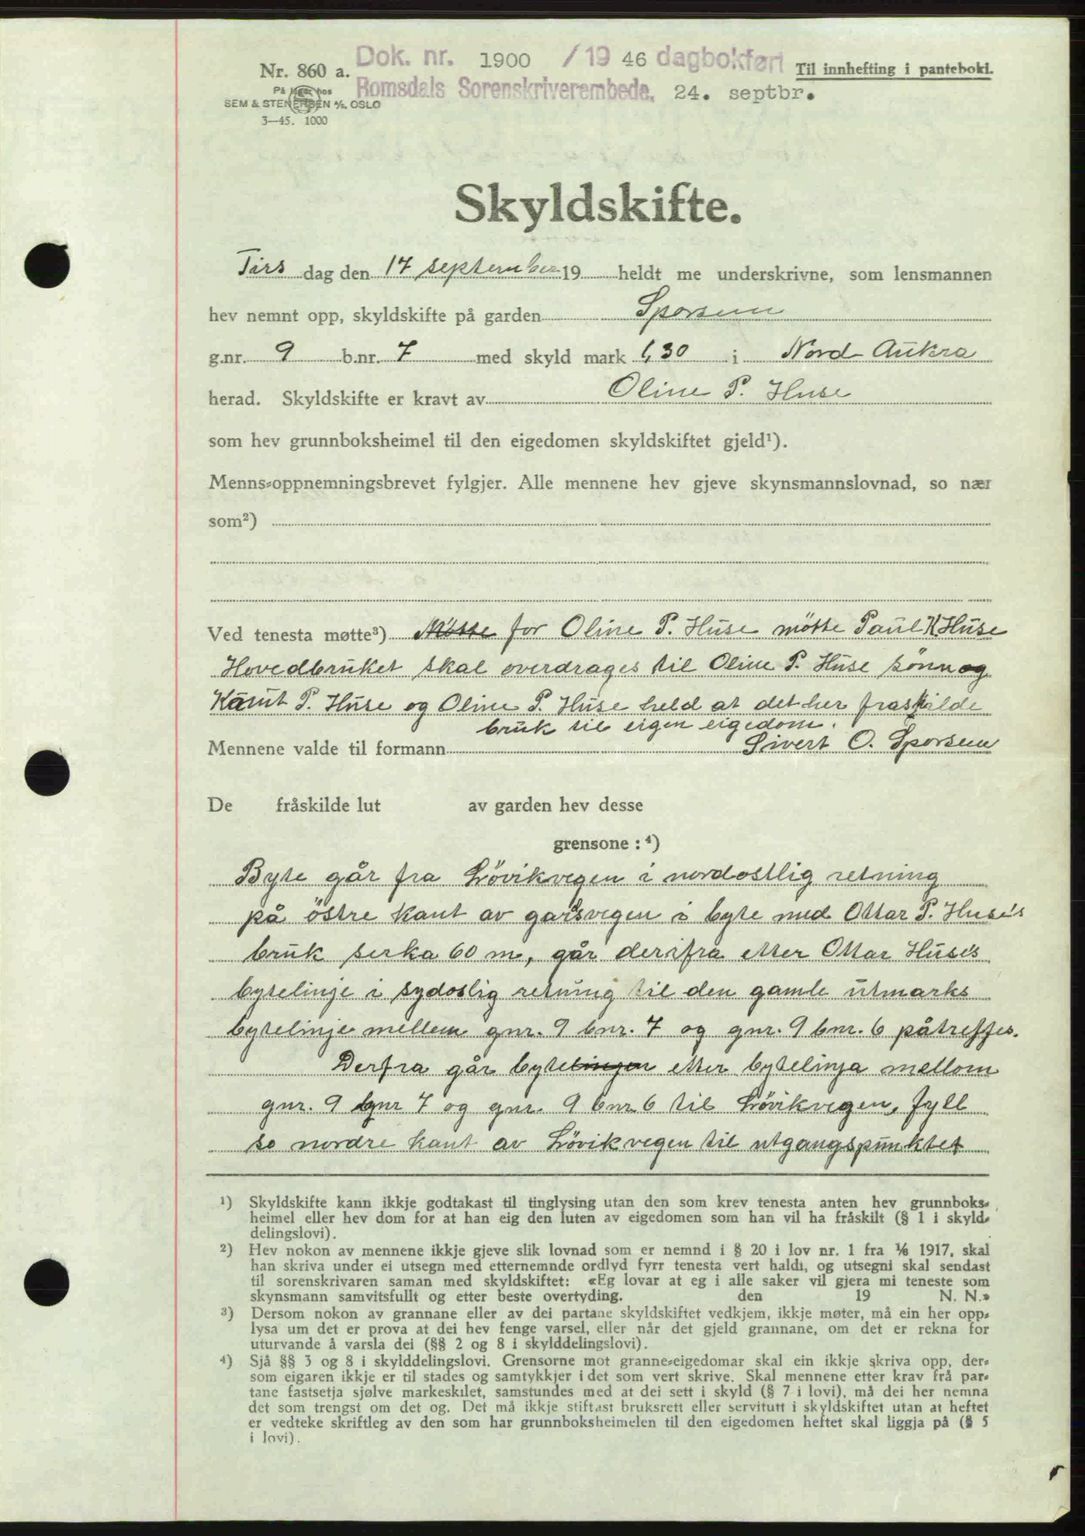 Dok. nr. 1900 / 19 46 dagbokført
Nr. 860 a.
Til innhefting i pantebok.
Romsdals Sorenskriverembede, 24. septbr.
På lager hos
SEM & STENERSEN A/S, OSLO
3—45. 1000
Skyldskifte.
Tirs dag den 17 september 19 heldt me underskrivne, som lensmannen
hev nemnt opp, skyldskifte på garden Sporsem
g.nr. 9 b.nr. 7 med skyld mark 1,30 i Nord Aukra
herad. Skyldskifte er kravt av Oline P. Huse
som hev grunnboksheimel til den eigedomen skyldskiftet gjeld¹).
Menns-oppnemningsbrevet fylgjer. Alle mennene hev gjeve skynsmannslovnad, so nær
som²)
Ved tenesta møtte³) Møtte for Oline P. Huse møtte Paul K Huse
Hovedbruket skal overdrages til Oline P. Huse sønn og
Knut P. Huse og Oline P. Huse held at det her fraskilde
bruk til eigen eigedom.
Mennene valde til formann Sivert O. Sporsem
De fråskilde lut av garden hev desse
grensone : ⁴)
Byte går fra Lövikvegen i nordostlig retning
på östre kant av gardsvegen i byte med Ottar P. Huse's
bruk serka 60 m, går derifra etter Ottar Huse's
bytelinje i sydoslig retning til den gamle utmarks
bytelinje mellem gnr. 9 bnr. 7 og gnr. 9 bnr. 6 påtreffes.
Derfra går bytelingen etter bytelinja mellom
gnr. 9 bnr 7 og gnr. 9 bnr 6 til Lövikvegen, fyll
so nordre kant av Lövikvegen til utgangspunktet
¹) Skyldskifte kann ikkje godtakast til tinglysing utan den som krev tenesta anten hev grunnboks-
heimel eller hev dom for at han eig den luten av eigedomen som han vil ha fråskilt (§ 1 i skyld-
delingslovi).
²) Hev nokon av mennene ikkje gjeve slik lovnad som er nemnd i § 20 i lov nr. 1 fra 1/6 1917, skal
han skriva under ei utsegn med etternemnde ordlyd fyrr tenesta vert haldi, og utsegni skal sendast
til sorenskrivaren saman med skyldskiftet: «Eg lovar at eg i alle saker vil gjera mi teneste som
skynsmann samvitsfullt og etter beste overtyding. den 19 N. N.»
³) Dersom nokon av grannane eller av dei partane skyldskiftet vedkjem, ikkje møter, må ein her opp-
lysa um det er prova at dei hev fenge varsel, eller når det gjeld grannane, om det er rekna for
uturvande å varsla dei (§§ 2 og 8 i skylddelingslovi).
⁴) Sjå §§ 3 og 8 i skylddelingslovi. Grensorne mot granne-eigedomar skal ein ikkje skriva opp, der-
som eigaren ikkje er til stades og samtykkjer i det som vert skrive. Skal mennene etter krav frå par-
tane fastsetja sjølve markeskilet, samstundes med at dei sett i skyld (§ 7 i lovi), må dei her nemna
det som trengst om det og. Det må ikkje stiftast bruksrett eller servitutt i skyldskiftet utan at heftet
er vedteke skriftleg av den som har grunnboksheimelen til den eigedomen heftet skal liggja på (§ 5
i lovi).